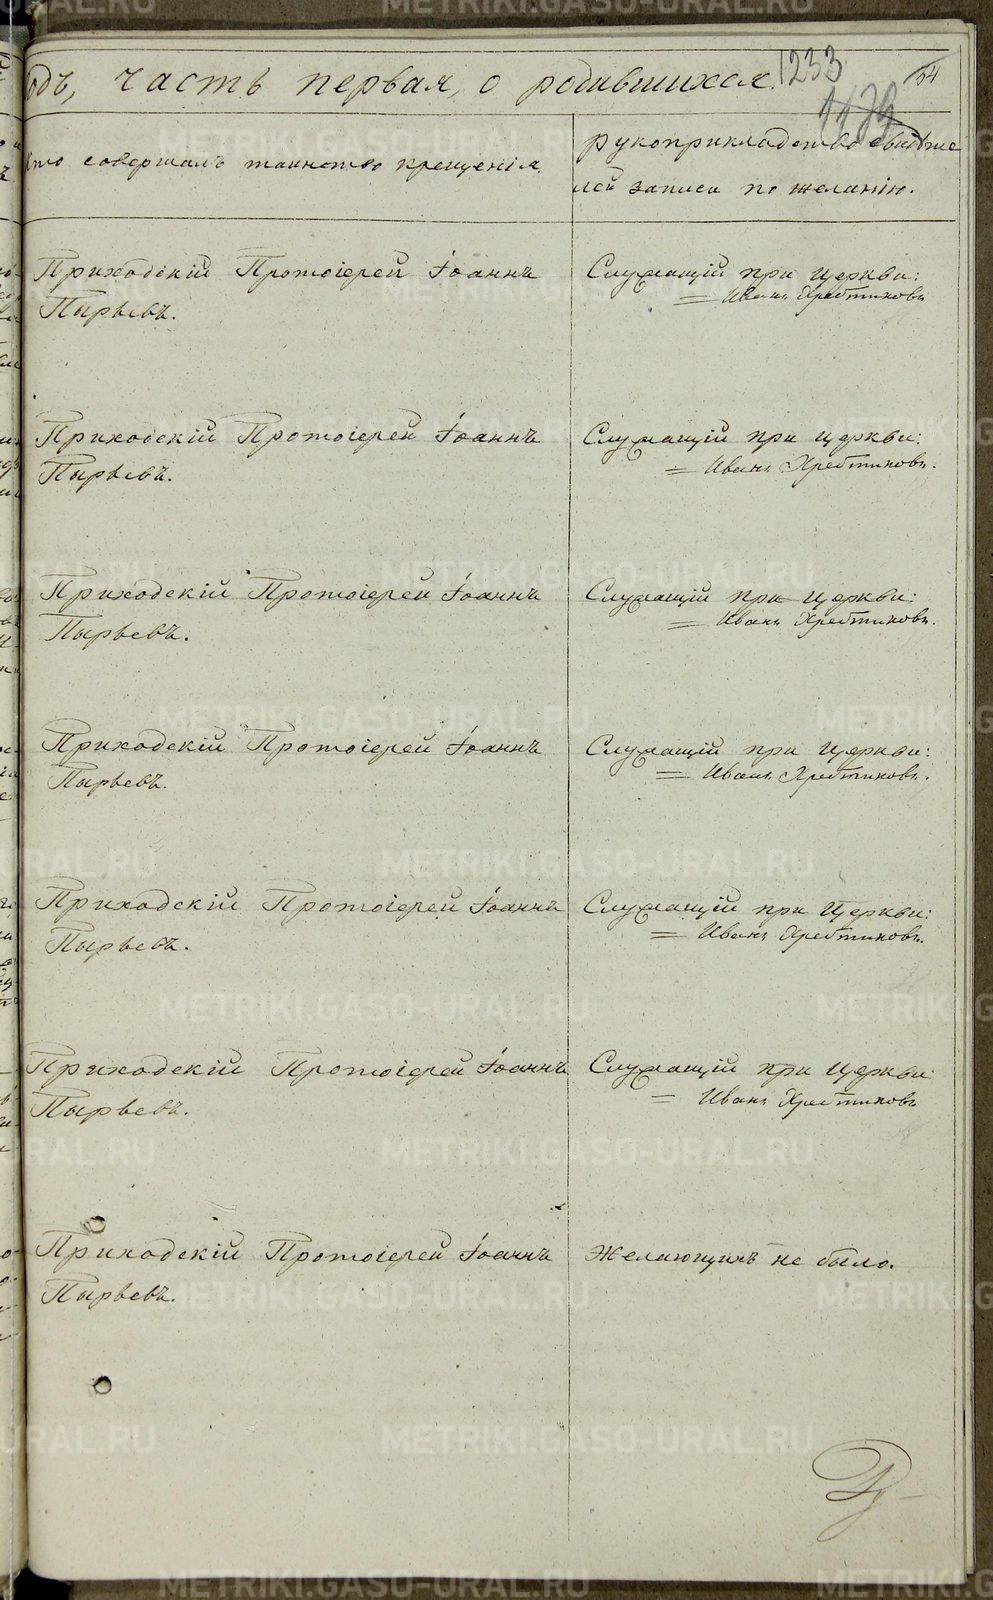 одъ, часть первая, о родившихся. 1233 54
1179
Кто совершалъ таинство крещенія. рукоприкладство свидѣте
лей записи по желанію.
Приходскій Протоіерей Іоаннъ Служащій при Церкви:
Пырьевъ. = Иванъ Хребтиковъ
Приходскій Протоіерей Іоаннъ Служащій при Церкви:
Пырьевъ. = Иванъ Хребтиковъ.
Приходскій Протоіерей Іоаннъ Служащій при Церкви:
Пырьевъ. = Иванъ Хребтиковъ.
Приходскій Протоіерей Іоаннъ Служащій при Церкви:
Пырьевъ. = Иванъ Хребтиковъ.
Приходскій Протоіерей Іоаннъ Служащій при Церкви:
Пырьевъ. = Иванъ Хребтиковъ.
Приходскій Протоіерей Іоаннъ Служащій при Церкви
Пырьевъ. = Иванъ Хребтиковъ
Приходскій Протоіерей Іоаннъ Желающихъ не было.
Пырьевъ.
METRIKI.GASO-URAL.RU